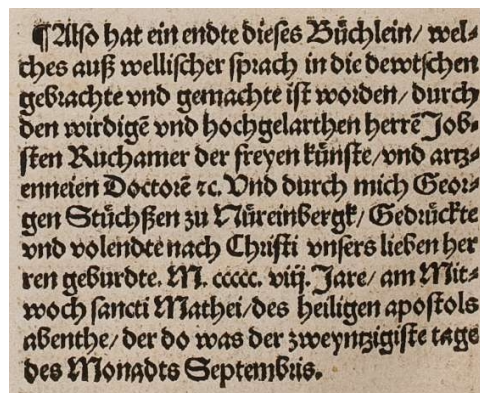 ¶Also hat ein endte dieses Büchlein/ wel⸗
ches auß wellischer sprach in die dewtschen
gebrachte vnd gemachte ist worden/ durch
den wirdigē vnd hochgelarthen herrē Job⸗
sten Ruchamer der freyen künste/ vnd artz⸗
enneien Doctorē ⁊c. Vnd durch mich Geor⸗
gen Stüchßen zu Nüreinbergk/ Gedrückte
vnd volendte nach Christi vnsers lieben her
ren geburdte. M. ccccc. viij. Jare/ am Mit⸗
woch sancti Mathei/ des heiligen apostols
abenthe/ der do was der zweyntzigiste tage
des Monadts Septembris.